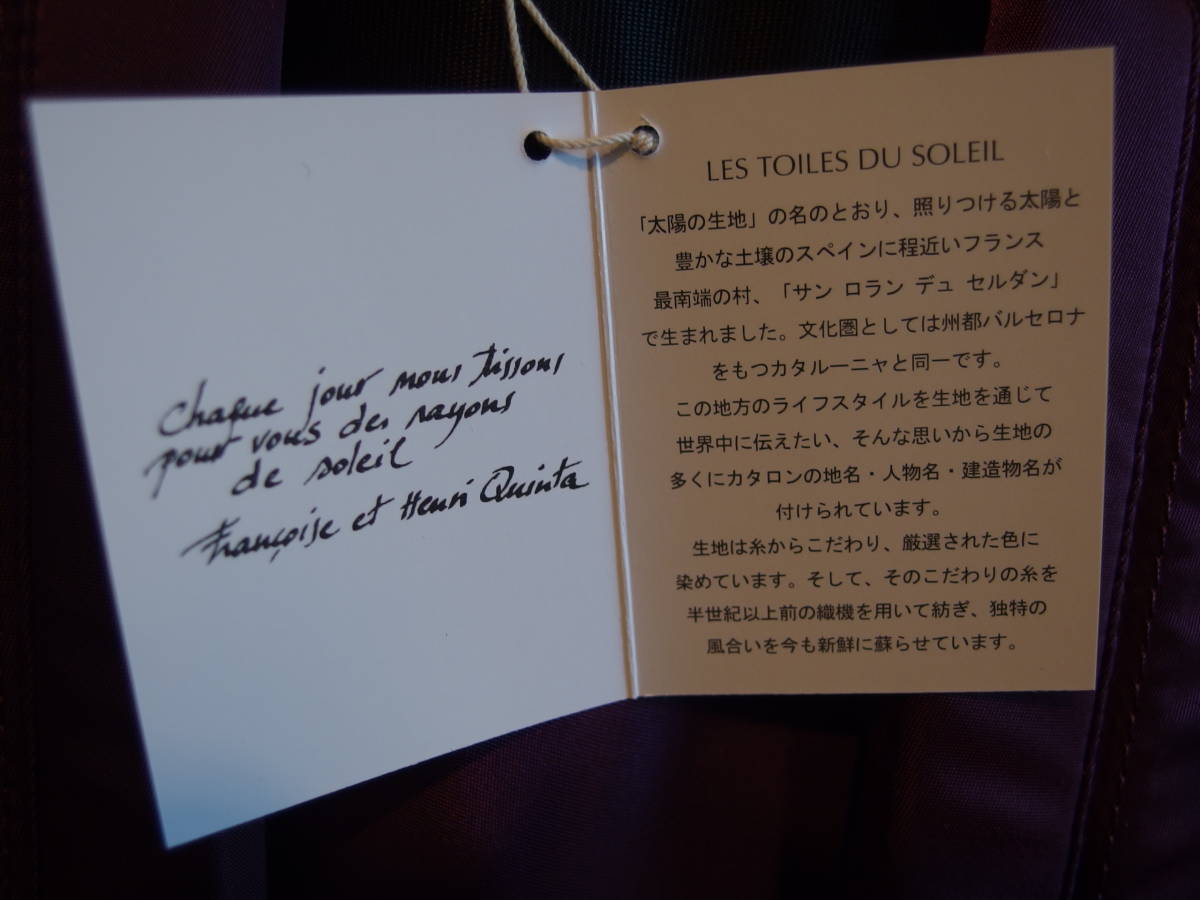 Chaque jour nous tissons
pour vous des rayons
de soleil
Françoise et Henri Quinta
LES TOILES DU SOLEIL
「太陽の生地」の名のとおり、照りつける太陽と
豊かな土壌のスペインに程近いフランス
最南端の村、「サン ロラン デュ セルダン」
で生まれました。文化圏としては州都バルセロナ
をもつカタルーニャと同一です。
この地方のライフスタイルを生地を通じて
世界中に伝えたい、そんな思いから生地の
多くにカタロンの地名・人物名・建造物名が
付けられています。
生地は糸からこだわり、厳選された色に
染めています。そして、そのこだわりの糸を
半世紀以上前の織機を用いて紡ぎ、独特の
風合いを今も新鮮に蘇らせています。